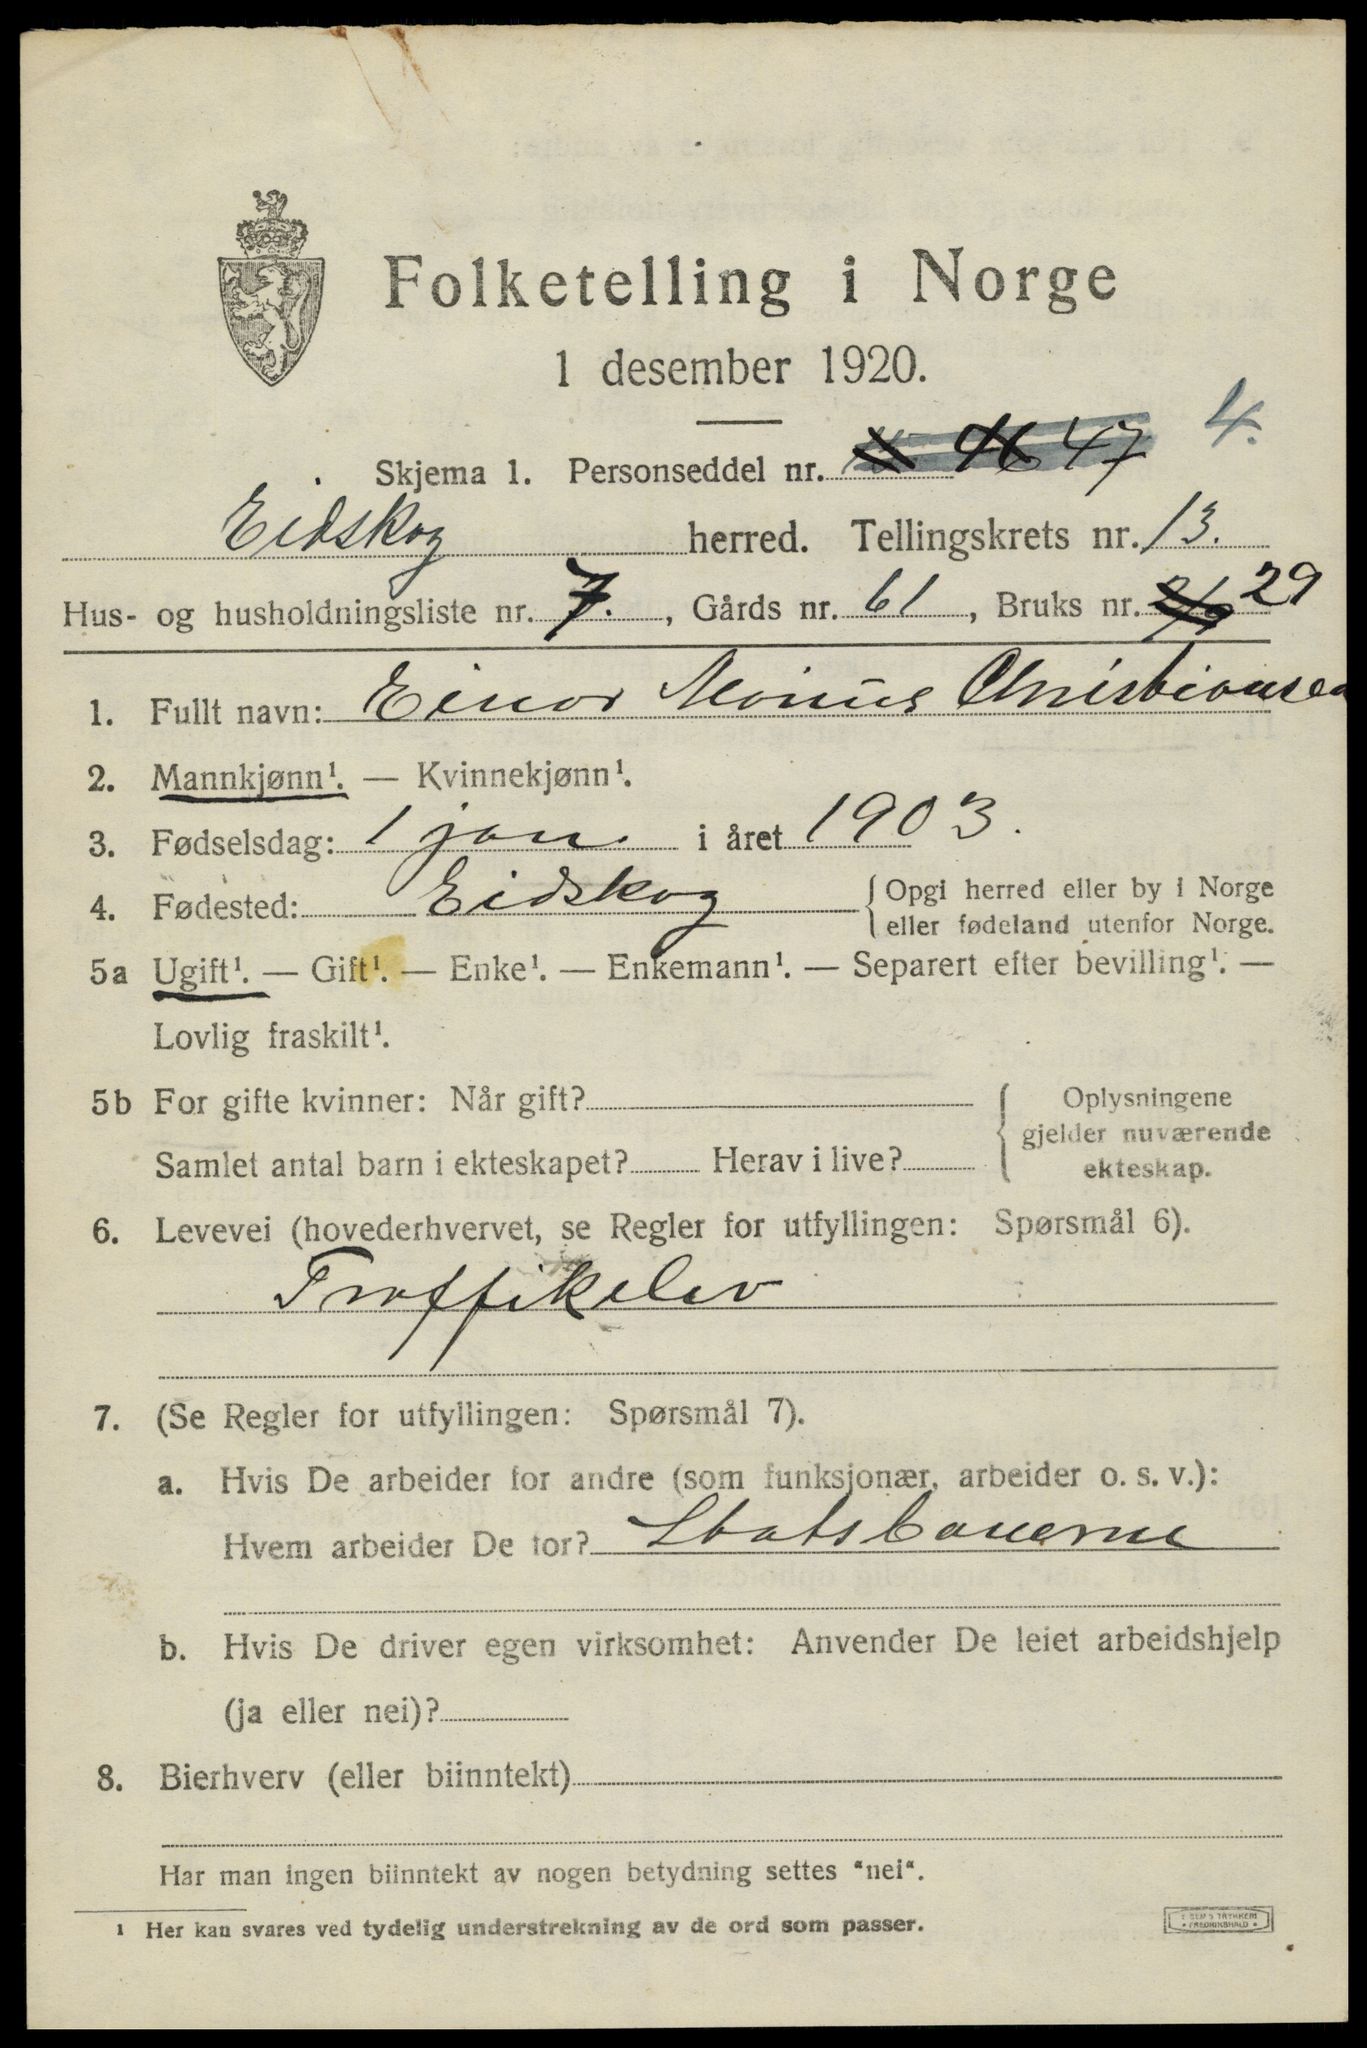 Folketelling i Norge
1 desember 1920.
4.
Skjema 1. Personseddel nr. 47
Eidskog herred. Tellingskrets nr. 13.
Hus- og husholdningsliste nr. 7. , Gårds nr. 61 , Bruks nr. 29
1. Fullt navn: Einar Marius Christiansen
2. Mannkjønn¹. — Kvinnekjønn¹.
3. Fødselsdag: 1 jan. i året 1903.
4. Fødested: Eidskog { Opgi herred eller by i Norge
eller fødeland utenfor Norge.
5a Ugift¹. — Gift¹. — Enke¹. — Enkemann¹. — Separert efter bevilling¹. —
Lovlig fraskilt¹.
5b For gifte kvinner: Når gift? { Oplysningene
gjelder nuværende
Samlet antal barn i ekteskapet? Herav i live? ekteskap.
6. Levevei (hovederhvervet, se Regler for utfyllingen: Spørsmål 6).
Traffikelev
7. (Se Regler for utfyllingen: Spørsmål 7).
a. Hvis De arbeider for andre (som funksjonær, arbeider o. s. v.):
Hvem arbeider De for? Statsbanerne
b. Hvis De driver egen virksomhet: Anvender De leiet arbeidshjelp
(ja eller nei)?
8. Bierhverv (eller biinntekt)
Har man ingen biinntekt av nogen betydning settes "nei".
¹ Her kan svares ved tydelig understrekning av de ord som passer.
TRYKKERI
FREDRIKSHALD